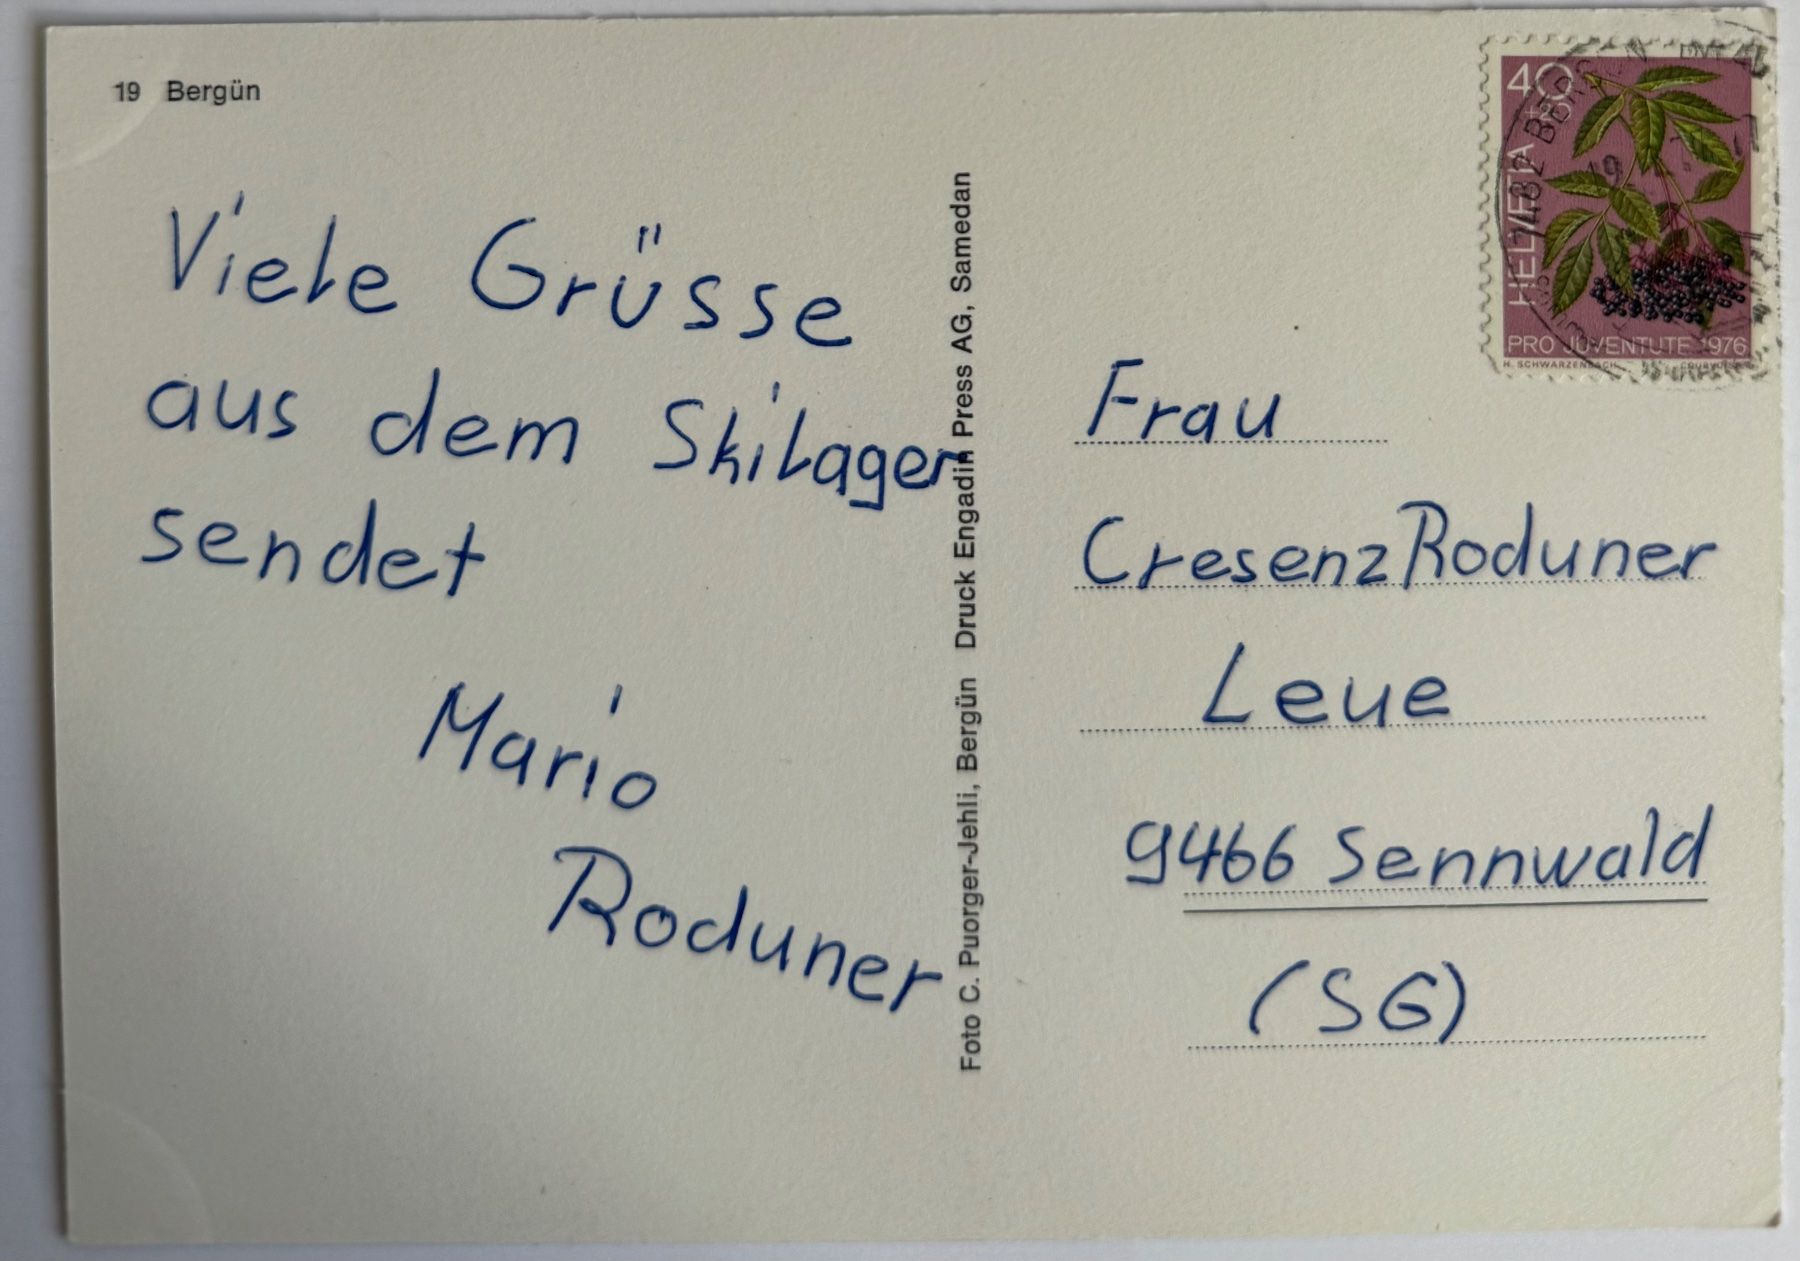 19 Bergün
Viele Grüsse
aus dem Skilager
sendet
Mario
Roduner
Foto C. Puorger-Jehli, Bergün Druck Engadin Press AG, Samedan
40
+20
HELVETIA
PRO JUVENTUTE 1976
H. SCHWARZENBACH
7482
Frau
Cresenz Roduner
Leue
9466 Sennwald
(SG)